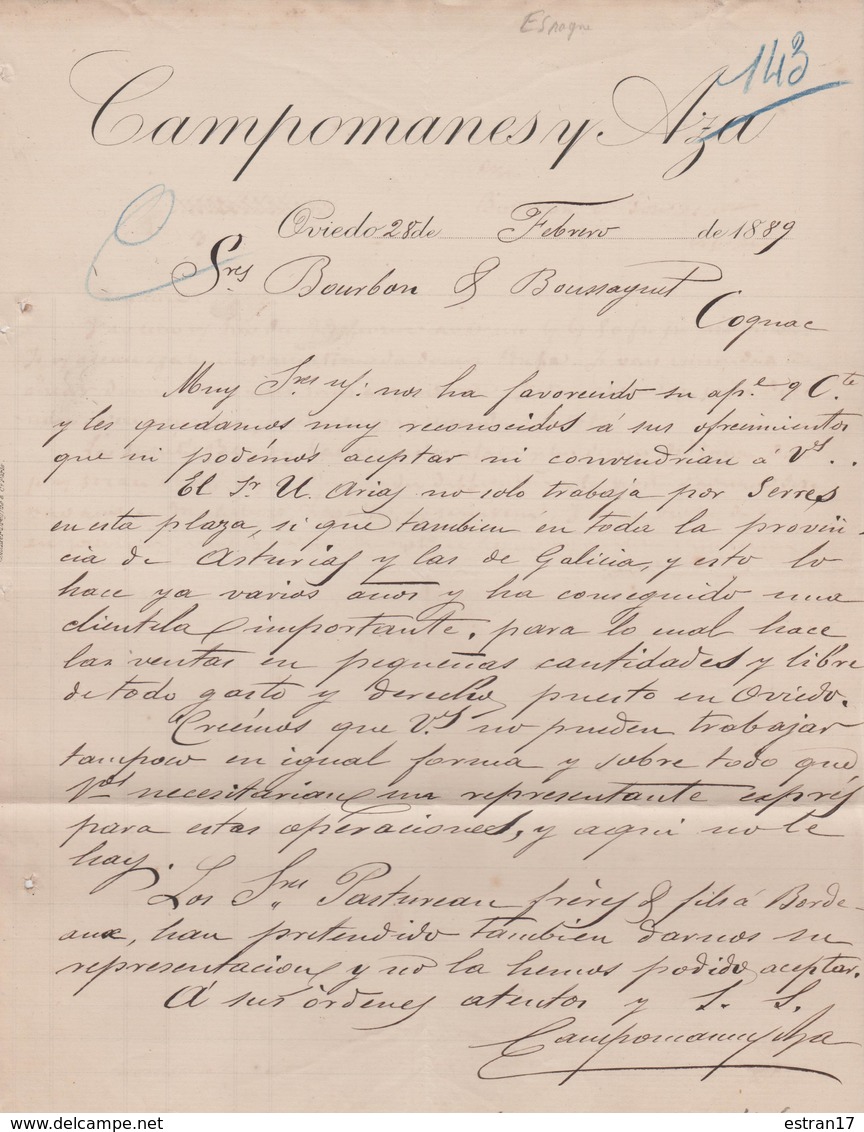 Espagne
143
Campomanes y Aza
Oviedo 28 de Febrero de 1889
Sres Bourbon & Boussaguet
Cognac
Muy Sres ns: nos ha favorecido su ap.e 9 C.te
y les quedamos muy reconocidos á sus ofrecimientos
que ni podémos aceptar ni convendrian á Vs..
El Sr U. Arias no solo trabaja por Serres
en esta plaza, si que tambien en toda la provin-
cia de Asturias y las de Galicia, y esto lo
hace ya varios años y ha conseguido una
clientela importante, para lo cual hace
las ventas en pequeñas cantidades y libre
de todo gasto y derecho, puesto en Oviedo.
Creémos que Vs no pueden trabajar
tampoco en igual forma y sobre todo que
Vds necesitarian un representante exprés
para estas operaciones, y aqui no le
hay.
Los Sres Pastureau frères & fils á Borde-
aux, han pretendido tambien darnos su
representacion y no la hemos podido aceptar.
Á sus órdenes atentos y S. S.
Campomanes y Aza
delcampe.net
estran17